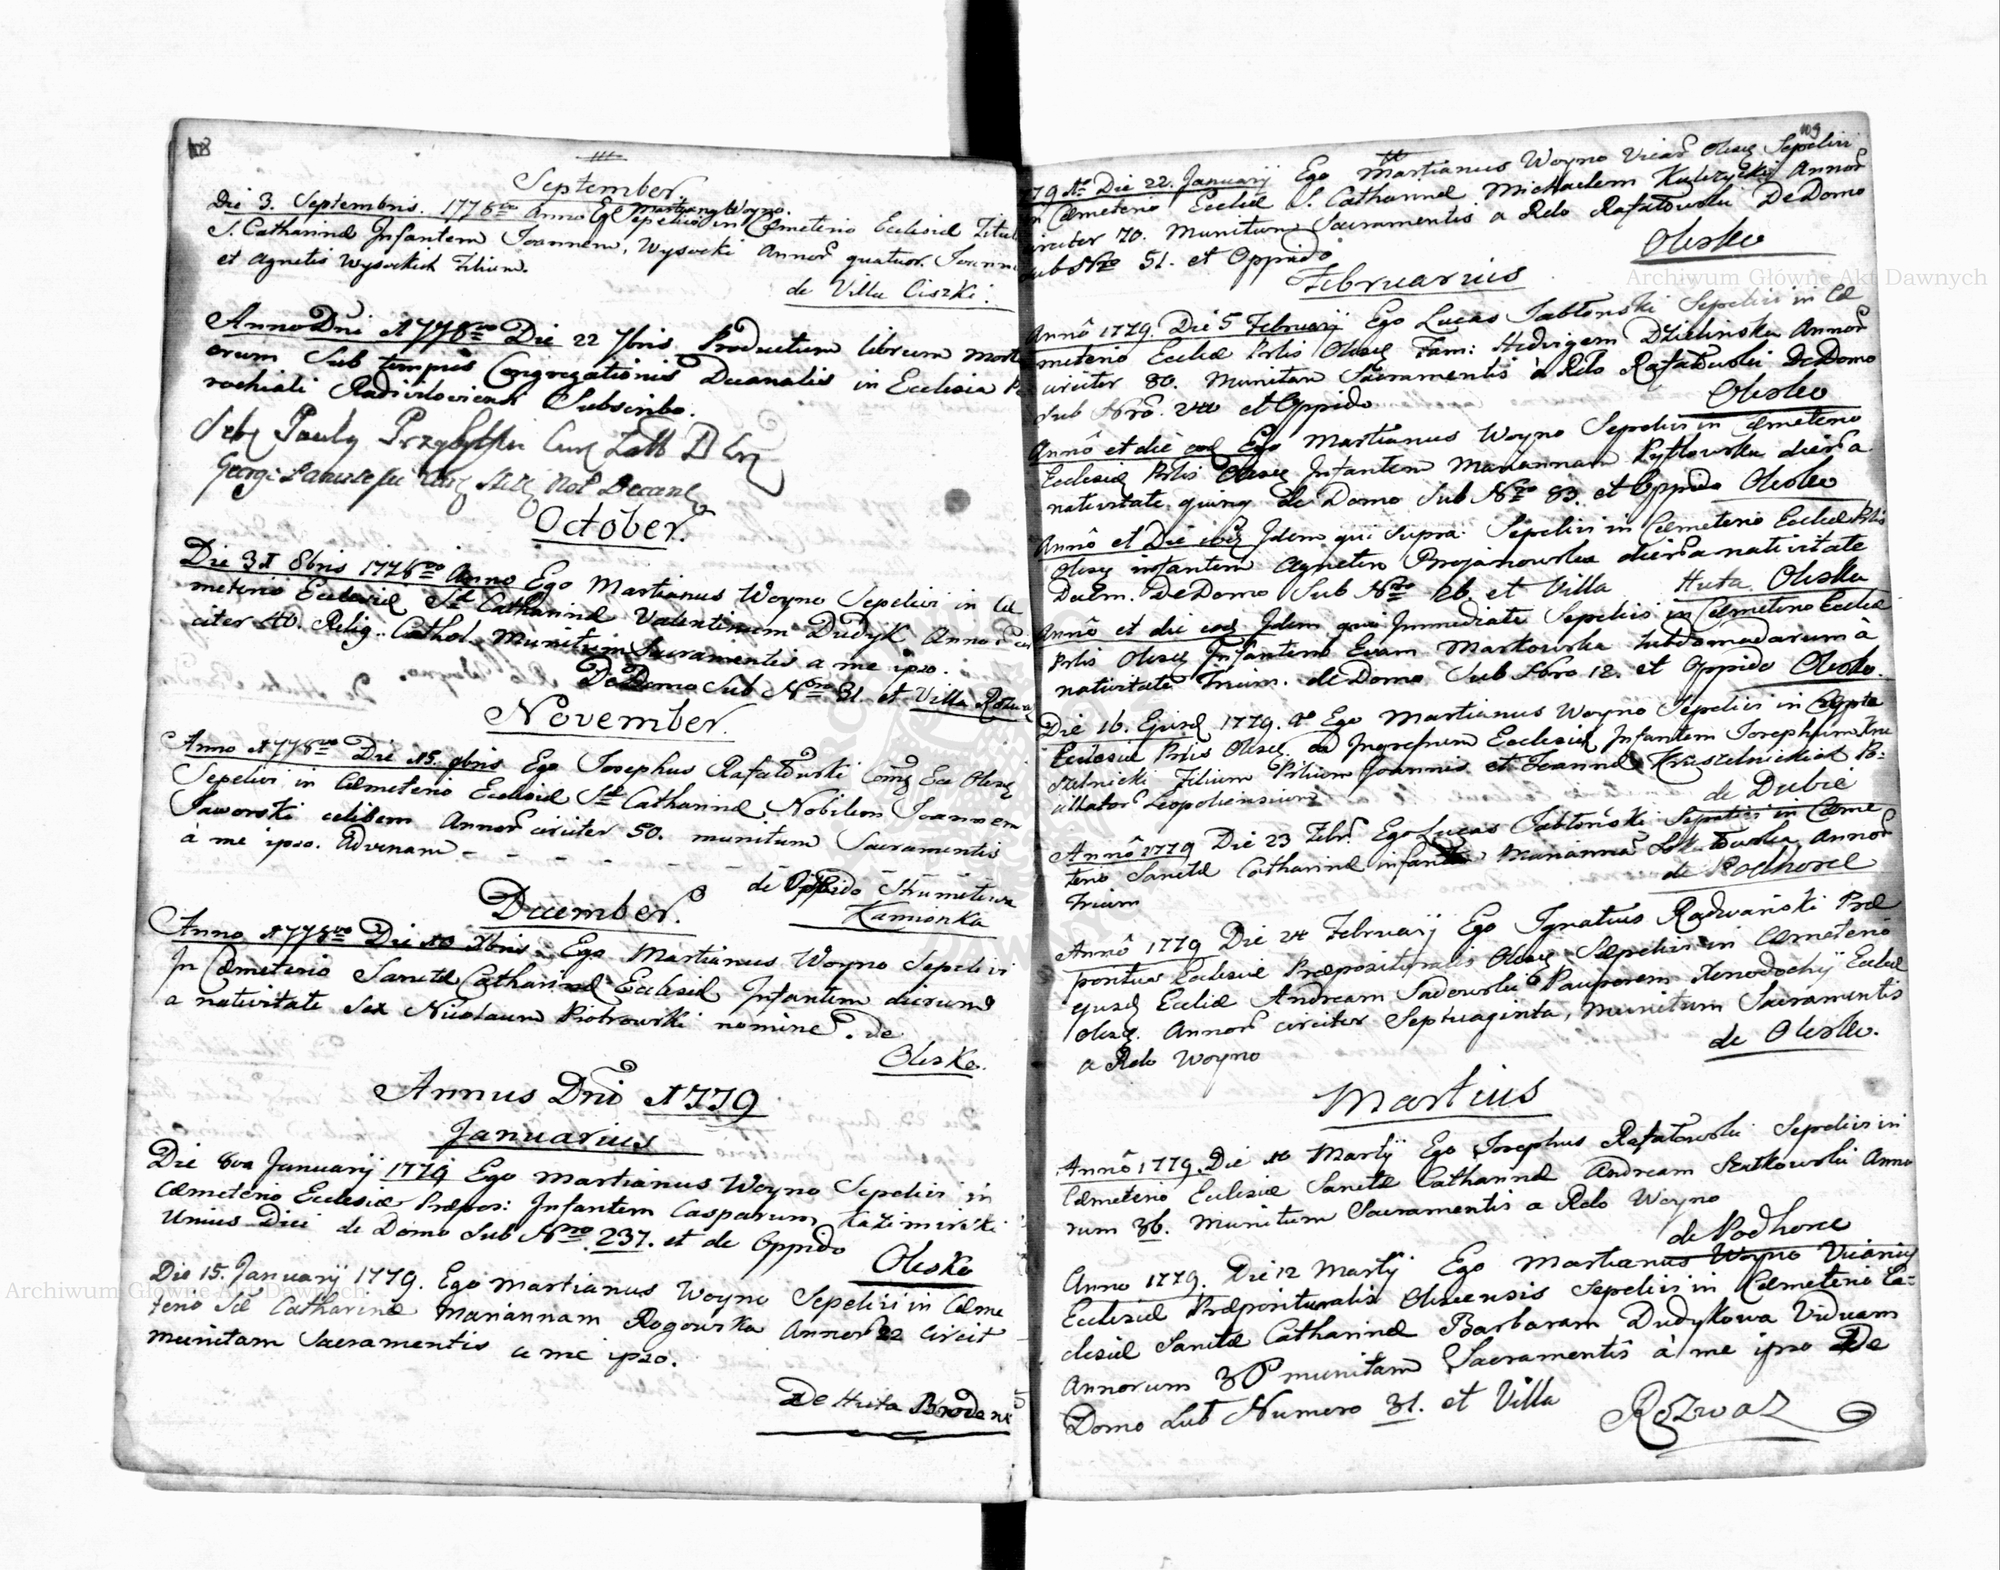 108
September
Die 3. Septembris. 1778vo Anno Ego Martianus Woyno Sepelivi in Cæmeterio Ecclesiæ Titul
S. Catharinæ Infantem Joannem, Wysocki Annor̃ quatuor. Joann
et Agnetis Wysockich Filium.
de Villa Ciszki.
Anno Dni 1778vo Die 22 7bris Productum librum mort
orum Sub tempus Congregationis Decanalis in Ecclesia P
rochiali Radivilloviensi Subscribo.
Pauly Przybylski Cur
Georg: Not Decanq
October.
Die 31 8bris 1778vo Anno Ego Martianus Woyno Sepelivi in Cæ
meterio Ecclesiæ Stæ Catharinæ Valentinum Dudyk Annor̃ cir
citer 40. Relig. Cathol. Munitum Sacramentis a me ipso.
De Domo Sub Nro 31. et Villa Rozwa
November.
Anno 1778vo Die 15. 9bris Ego Josephus Rafałowski Com Ecc Olesq
Sepelivi in Cæmeterio Ecclesiæ Stæ Catharinæ Nobilem Joannem
Jaworski cælibem Annor̃ circiter 50. munitum Sacramentis
à me ipso. Advenam - - - - - - - -
de Oppido Strumetowa
Kamionka
December.
Anno 1778vo Die 10 Xbris. Ego Martianus Woyno Sepelivi
In Cæmeterio Sanctæ Catharinæ Ecclesiæ Infantem dierum
a nativitate Sex Nicolaum Piotrowski nomine. de
Olesko.
Annus Dni 1779
Januarius
Die 8va Januarij 1779 Ego Martianus Woyno Sepelivi in
Cæmeterio Ecclesiæ Præpos: Infantem Casparum Kazimirski
Unius Diei de Domo Sub Nro 237. et de Oppido
Olesko
Die 15. Januarij 1779. Ego Martianus Woyno Sepelivi in Cæme
terio Stæ Catharinæ Mariannam Rogowska Annor̃ 22 Circit
munitam Sacramentis a me ipso.
De Huta Brodens
109
79 Ao Die 22. Januarij Ego Martianus Woyno Vicar̃ Olesq Sepelivi
in Cæmeterio Eccliæ S. Catharinæ Michaelem Kulczycki Annor̃
circiter 70. Munitum Sacramentis a Rdo Rafałowski De Domo
sub Nro 51. et Oppido
Olesko
Februarius
Annô 1779. Die 5 Februarij Ego Lucas Jabłonski Sepelivi in Cæ
meterio Eccliæ Prlis Olesq Fam: Hedvigem Dzielinska Annor̃
circiter 80. Munitam Sacramentis à Rdo Rafałowski De Domo
Sub Nrô. 240 et Oppido
Olesko
Annô et die eod Ego Martianus Woyno Sepelivi in Cæmeterio
Ecclesiæ Prlis Olesq Infantem Mariannam Pytlowska dier̃ a
nativitate quinq de Domo Sub Nro 83. et Oppido Olesko
Annô et Die eod Idem qui Supra: Sepelivi in Cæmeterio Eccliæ Prlis
Olesq infantem Agnetem Projanowska dier̃ a nativitate
De Domo Sub Nro 26. et Villa Huta Oleska
Annô et die eod Idem qui Immediate Sepelivi in Cæmeterio Eccliæ
Prlis Olesq Infantem Evam Markowska hebdomadarum à
nativitate trium. de Domo Sub Nro 12. et Oppido Olesko.
Die 16. Ejusd 1779. Ao Ego Martianus Woyno Sepelivi in Crypta
Ecclesiæ Prlis Olesq. ad Ingressum Ecclesiæ Infantem Josephum Kru
szelnicki Filium Joannis et Joannæ Kruszelnickich
Leopoliensium
de Dubie
Annô 1779 Die 23 Febr̃. Ego Lucas Jabłoński Sepelivi in Cæme
terio Sanctæ Catharinæ infantem Mariannã Annor̃
trium
de Podhorce
Annô 1779 Die 24 Februarij Ego Ignatius Radwański Præ
positus Ecclesiæ Præposituralis Olesq Sepelivi in Cæmeterio
ejusd Eccliæ Andream Sadowski Pauperem Xenodochij Eccliæ
Olesq. Annor̃ circiter Septuaginta, Munitum Sacramentis
a Rdo Woyno
de Olesko.
Martius
Annô 1779 Die 10 Martij Ego Josephus Rafałowski Sepelivi in
Cæmeterio Ecclesiæ Sanctæ Catharinæ Andream Szatkowski Anno
rum 36. Munitum Sacramentis a Rdo Woyno
de Podhorce
Anno 1779. Die 12 Martij Ego Martianus Woyno Vicarius
Ecclesiæ Præposituralis Olescensis Sepelivi in Cæmeterio Ec-
clesiæ Sanctæ Catharinæ Barbaram Dudykowa Viduam
Annorum 30 munitam Sacramentis à me ipso De
Domo Sub Numero 31. et Villa
Rozwaz
Archiwum Główne Akt Dawnych
Archiwum Główne Akt Dawnych